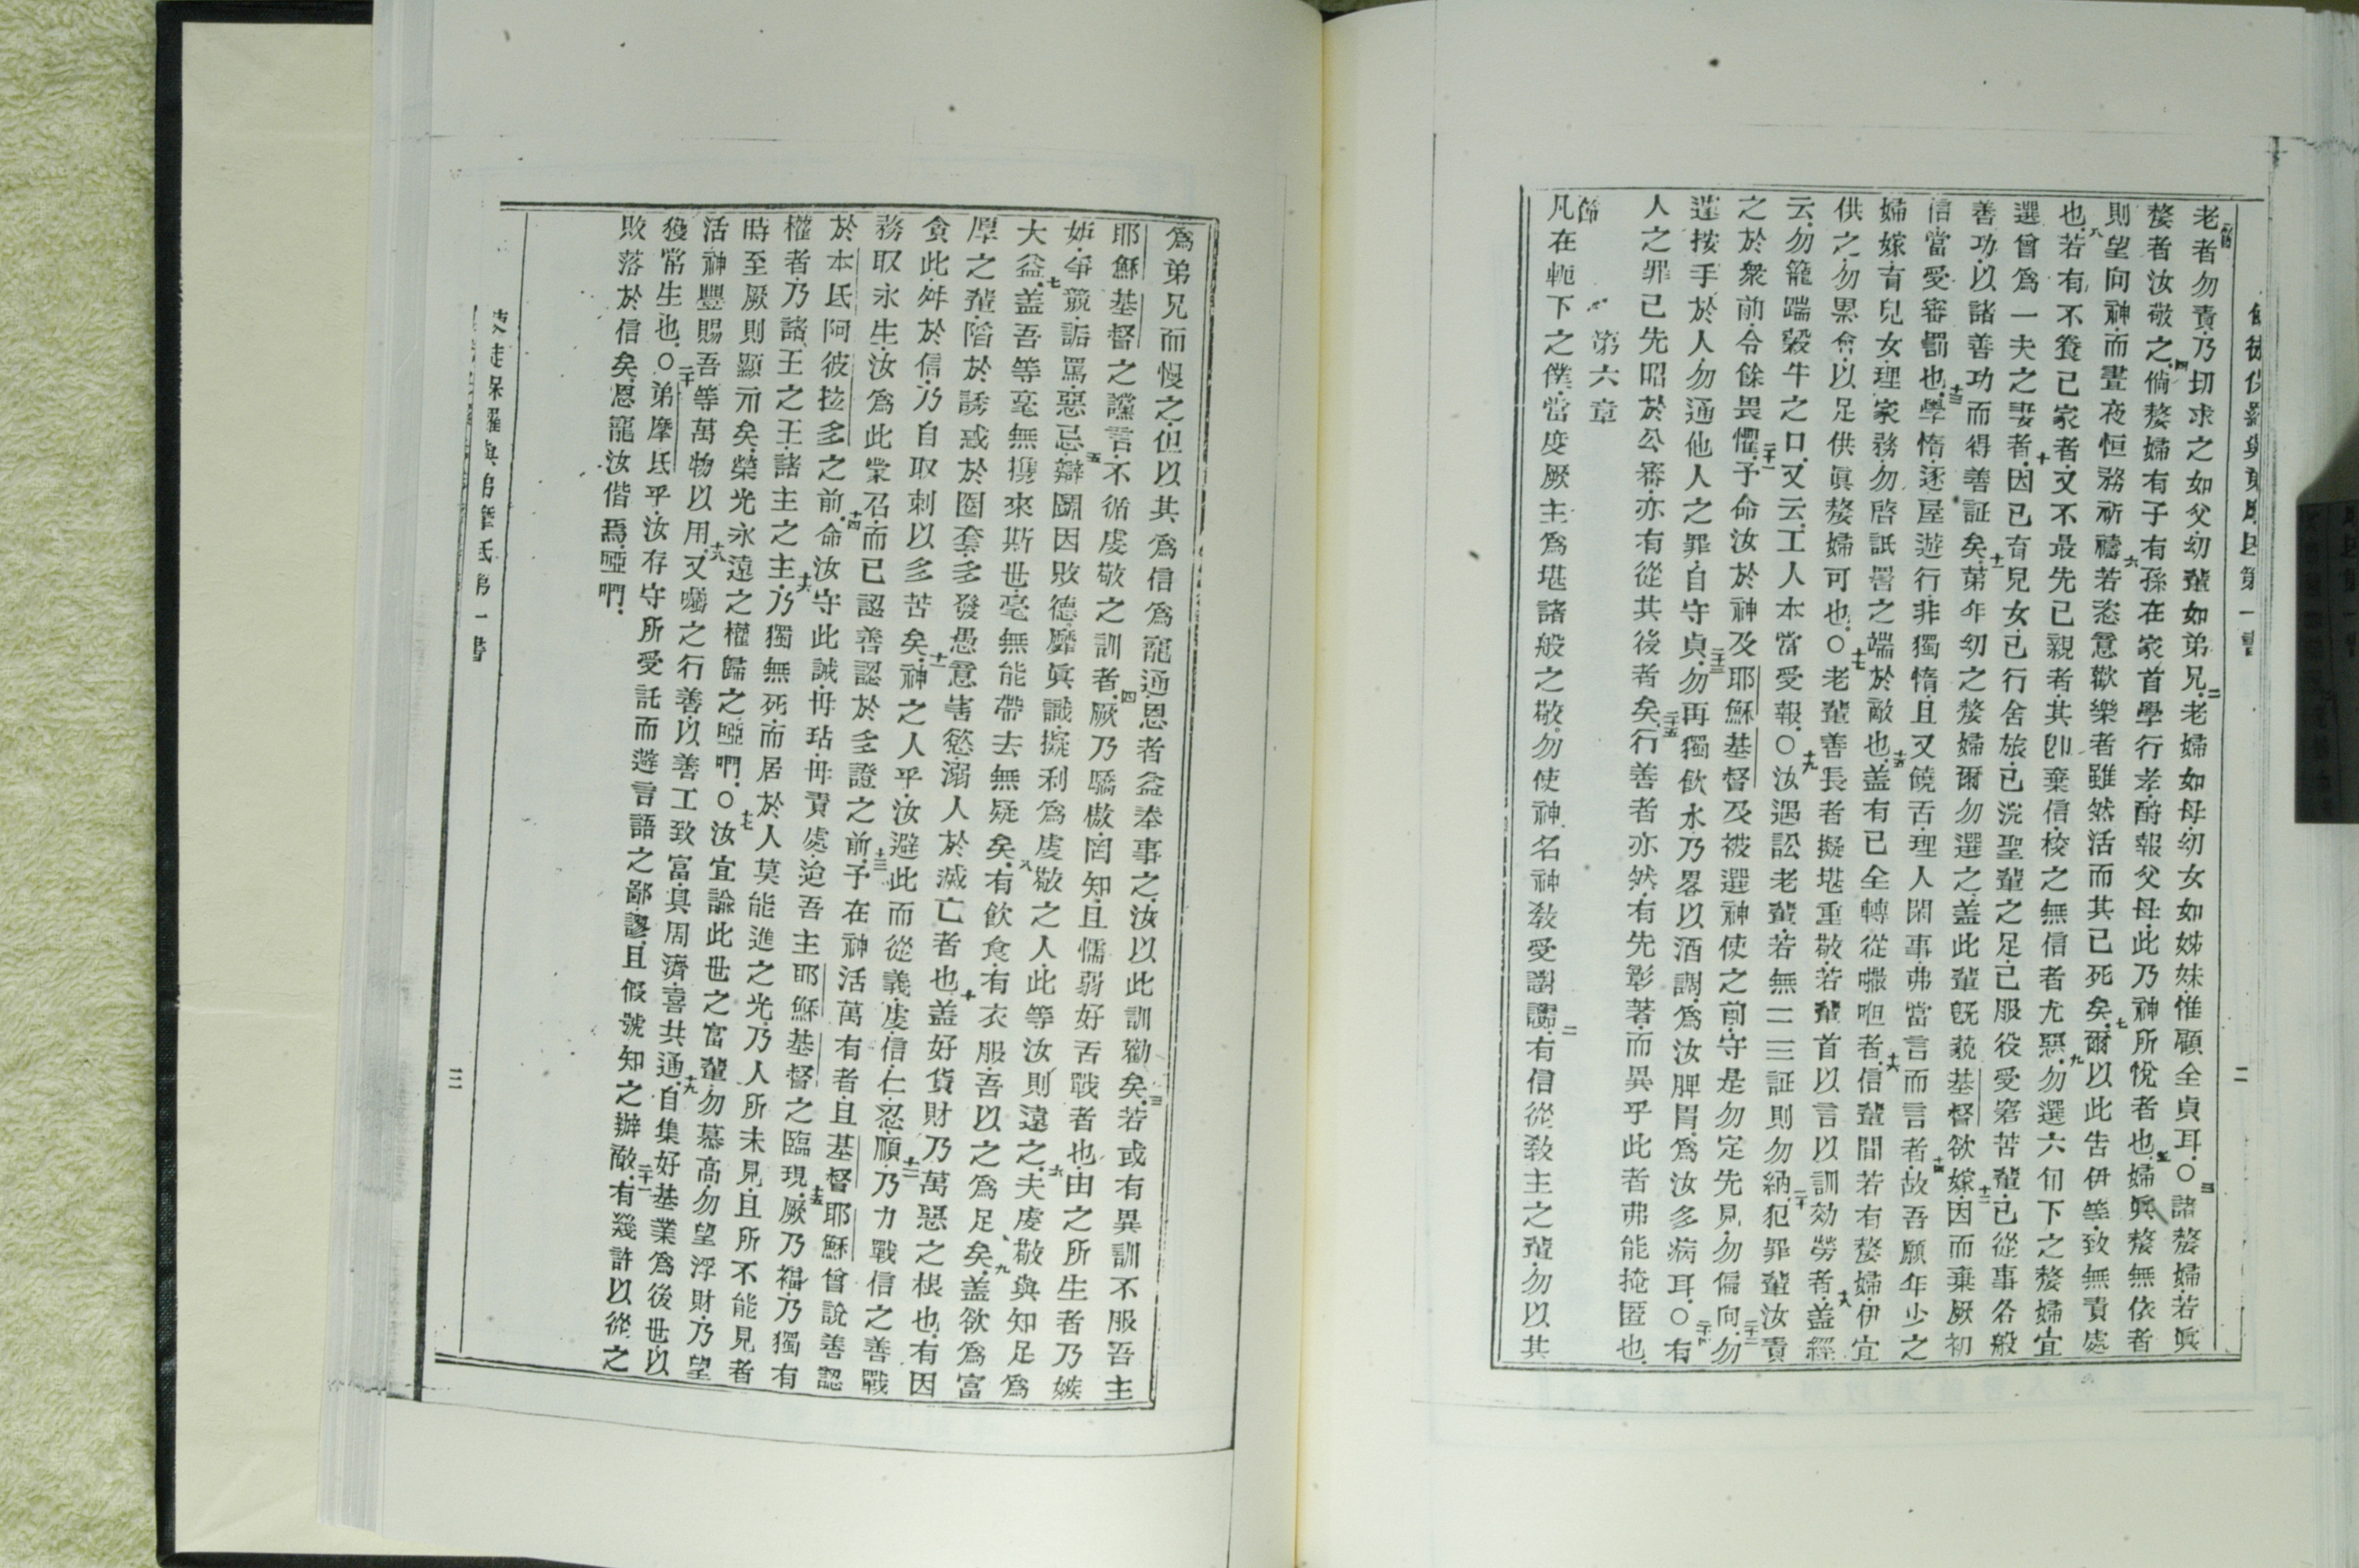 使徒保羅與弟摩氐第一書 二
節老者勿責乃切求之如父幼輩如弟兄二老婦如母幼女如姊妹惟顧全貞耳○三諸嫠婦若眞
嫠者汝敬之四倘嫠婦有子有孫在家首學行孝酧報父母此乃神所悅者也五婦眞嫠無依者
則望向神而晝夜恒務祈禱六若恣意歡樂者雖然活而其已死矣七爾以此吿伊等致無責處
也八若有不養己家者又不最先己親者其卽棄信校之無信者尤惡九勿選六旬下之嫠婦宜
選曾爲一夫之妻者十因已育兒女已行舍旅已浣聖輩之足已服役受窘苦輩已從事各般
善功以諸善功而得善証矣十一第年幼之嫠婦爾勿選之盖此輩旣藐基督欲嫁十二因而棄厥初
信當受審罰也十三學惰逐屋遊行非獨惰且又饒舌理人閑事弗當言而言者十四故吾願年少之
婦嫁育兒女理家務勿啓詆詈之端於敵也十五盖有已全轉從𠾐呾者十六信輩間若有嫠婦伊宜
供之勿累會以足供眞嫠婦可也○十七老輩善長者擬堪重敬若輩首以言以訓効勞者十八盖經
云勿籠踹穀牛之口又云工人本當受報○十九汝遇訟老輩若無二三証則勿納二十犯罪輩汝責
之於衆前令餘畏懼二十一予命汝於神及耶穌基督及被選神使之前守是勿定先見勿偏向二十二勿
遽按手於人勿通他人之罪自守貞二十三勿再獨飮水乃畧以酒調爲汝脾胃爲汝多病耳○二十四有
人之罪已先昭於公審亦有從其後者矣二十五行善者亦然有先彰著而異乎此者弗能掩匿也
第六章
節凡在軛下之僕當度厥主爲堪諸般之敬勿使神名神敎受謝謗二有信從敎主之輩勿以其
爲弟兄而慢之但以其爲信爲寵通恩者益奉事之汝以此訓勸矣三若或有異訓不服吾主
耶穌基督之讜言不循虔敬之訓者四厥乃驕傲罔知且懦弱好舌戰者也由之所生者乃嫉
妬爭競詬罵惡忌五辯鬬因敗德靡眞識擬利爲虔敬之人此等汝則遠之六夫虔敬與知足爲
大益七盖吾等毫無攜來斯世毫無能帶去無疑矣八有飮食有衣服吾以之爲足矣九盖欲爲富
厚之輩陷於誘惑於圈套多發愚意害慾溺人於滅亡者也十盖好貨財乃萬惡之根也有因
貪此舛於信乃自取刺以多苦矣十一神之人乎汝避此而從義虔信仁忍順十二乃力戰信之善戰
務取永生汝爲此蒙召而已認善認於多證之前十三予在神活萬有者且基督耶穌曾說善認
於本氐阿彼拉多之前十四命汝守此誡毋玷毋責處迨吾主耶穌基督之臨現十五厥乃福乃獨有
權者乃諸王之王諸主之主十六乃獨無死而居於人莫能進之光乃人所未見且所不能見者
時至厥則顯示矣榮光永遠之權歸之啞𠵽○十七汝宜諭此世之富輩勿慕高勿望浮財乃望
活神豐賜吾等萬物以用十八又囑之行善以善工致富具周濟喜共通十九自集好基業爲後世以
獲常生也○二十弟摩氐乎汝存守所受託而避言語之鄙謬且假號知之辦敵二十一有幾許以從之
敗落於信矣恩寵汝偕焉啞𠵽
使徒保羅與弟摩氐第一書 三